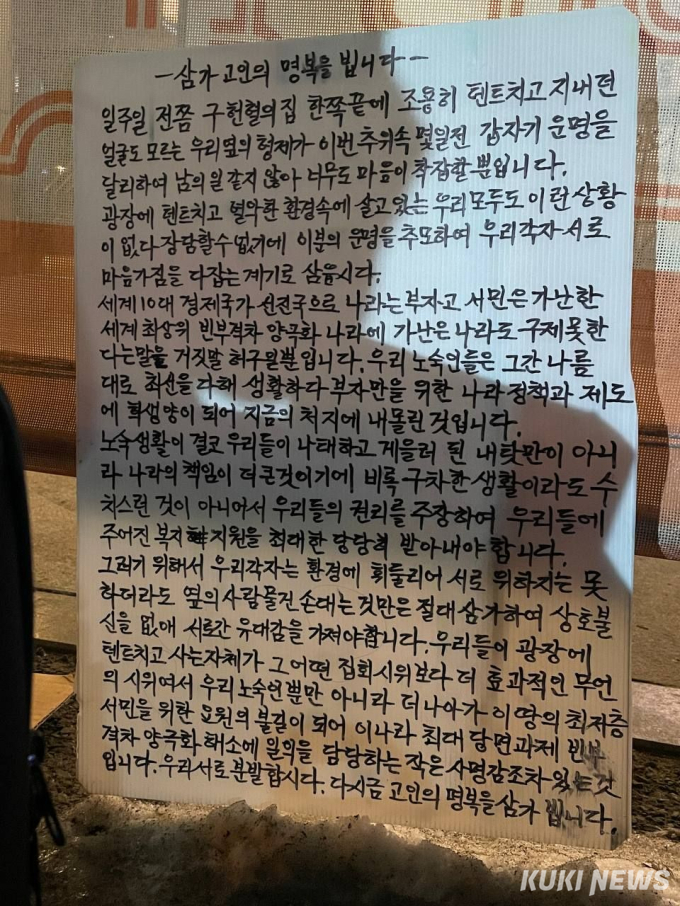 -삼가 고인의 명복을 빕니다-
일주일 전쯤 구 헌혈의집 한쪽끝에 조용히 텐트치고 지내던
얼굴도 모르는 우리옆의 형제가 이번 추위속 몇일전 갑자기 운명을
달리하여 남의 일 같지 않아 너무도 마음이 착잡할 뿐입니다.
광장에 텐트치고 열악한 환경속에 살고 있는 우리 모두도 이런 상황
이 없다 장담할수 없기에 이분의 운명을 추모하여 우리각자 서로
마음가짐을 다잡는 계기로 삼읍시다.
세계10대 경제국가 선진국으로 나라는 부자고 서민은 가난한
세계 최상위 빈부격차 양극화 나라에 가난은 나라도 구제 못한
다는말을 거짓말 허구일뿐입니다. 우리 노숙인들은 그간 나름
대로 최선을 다해 생활하다 부자만을 위한 나라 정책과 제도
에 희생양이 되어 지금의 처지에 내몰린 것입니다.
노숙생활이 결코 우리들이 나태하고 게을러 된 내탓만이 아니
라 나라의 책임이 더 큰것이기에 비록 구차한 생활이라도 수
치스런 것이 아니어서 우리들의 권리를 주장하여 우리들에
주어진 복지 지원을 최대한 당당히 받아내야 합니다.
그러기 위해서 우리각자는 환경에 휘둘리어 서로 위하지는 못
하더라도 옆의 사람물건 손대는 것만은 절대 삼가하여 상호불
신을 없애 서로간 유대감을 가져야합니다. 우리들이 광장에
텐트치고 사는자체가 그 어떤 집회시위보다 더 효과적인 무언
의 시위여서 우리 노숙인뿐만 아니라 더 나아가 이 땅의 최저층
서민을 위한 요원의 불길이 되어 이나라 최대 당면과제 빈부
격차 양극화 해소에 일익을 담당하는 작은 사명감조차 있는것
입니다. 우리 서로 분발합시다. 다시금 고인의 명복을 삼가 빕니다.
KUKI NEWS